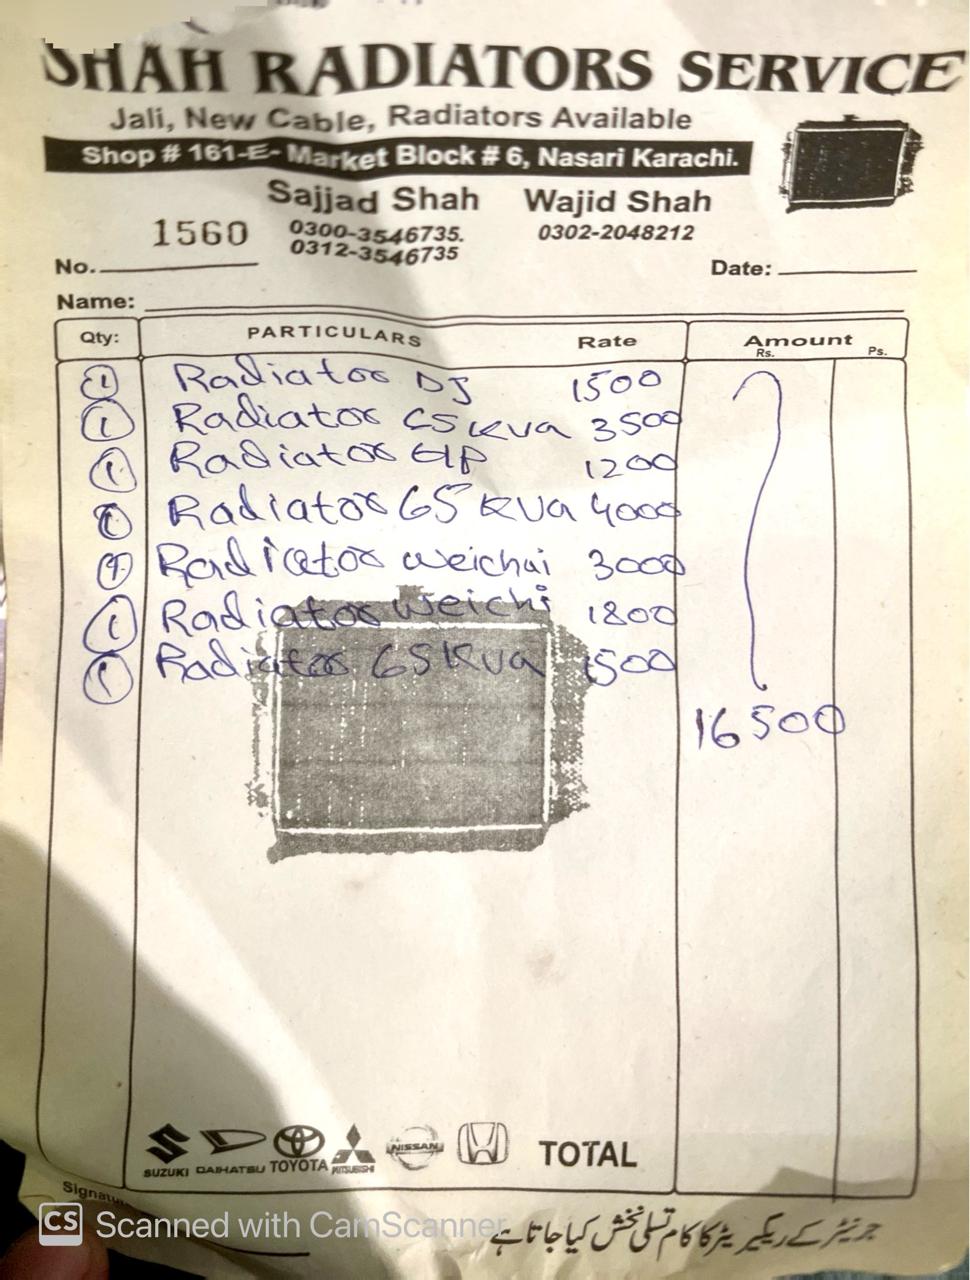 SHAH RADIATORS SERVICE
Jali, New Cable, Radiators Available
Shop # 161-E- Market Block # 6, Nasari Karachi.
Sajjad Shah Wajid Shah
0300-3546735. 0302-2048212
0312-3546735
No. 1560 Date:
Name:
Qty: PARTICULARS Rate Amount
Rs. Ps.
1 Radiator DJ 1500
1 Radiator 65 KVA 3500
1 Radiator 1200
1 Radiator 65 KVA 4000
1 Radiator weichai 3000
1 Radiator weichi 1800
1 Radiator 65 KVA 1500
16500
SUZUKI DAIHATSU TOYOTA MITSUBISHI NISSAN TOTAL
Signatu
جرنیٹر کے ریگیریٹر کا کام تسلی بخش کیا جاتا ہے
CS Scanned with CamScanner